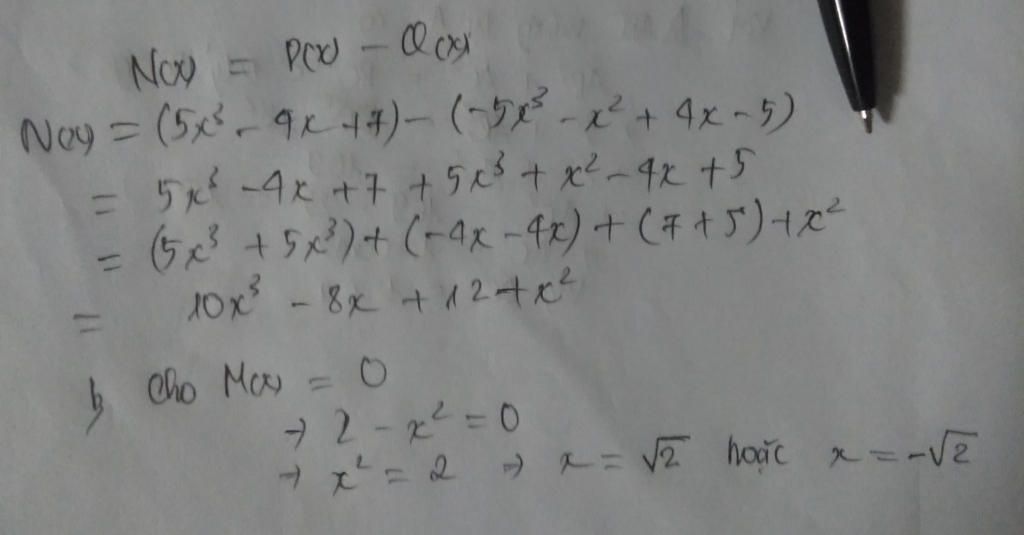 N(x) = P(x) - Q(x)
N(x) = (5x³ - 4x + 7) - (-5x³ - x² + 4x - 5)
= 5x³ - 4x + 7 + 5x³ + x² - 4x + 5
= (5x³ + 5x³) + (-4x - 4x) + (7 + 5) + x²
= 10x³ - 8x + 12 + x²
b, Cho M(x) = 0
→ 2 - x² = 0
→ x² = 2 → x = √2 hoặc x = -√2